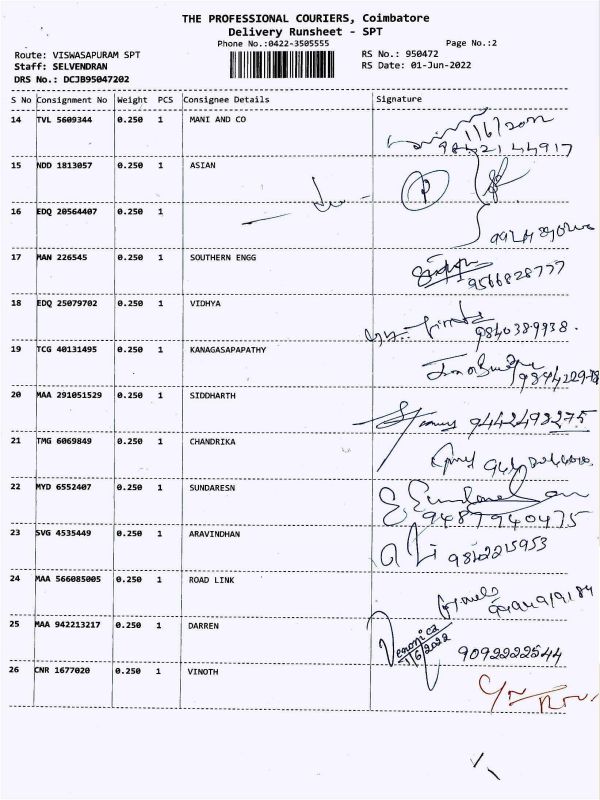 THE PROFESSIONAL COURIERS, Coimbatore
Delivery Runsheet - SPT
Phone No.:0422-3505555 Page No.:2
Route: VISWASAPURAM SPT RS No.: 950472
Staff: SELVENDRAN RS Date: 01-Jun-2022
DRS No.: DCJB95047202
S No Consignment No Weight PCS Consignee Details Signature
14 TVL 5609344 0.250 1 MANI AND CO 1/6/2022
98421 44917
15 NDD 1813057 0.250 1 ASIAN
16 EDQ 20564407 0.250 1
17 MAN 226545 0.250 1 SOUTHERN ENGG
9566828777
18 EDQ 25079702 0.250 1 VIDHYA
9840389938.
19 TCG 40131495 0.250 1 KANAGASAPAPATHY
20 MAA 291051529 0.250 1 SIDDHARTH 9442493275
21 TMG 6069849 0.250 1 CHANDRIKA
22 MYD 6552407 0.250 1 SUNDARESN
9487940475
23 SVG 4535449 0.250 1 ARAVINDHAN 9842215953
24 MAA 566085005 0.250 1 ROAD LINK
25 MAA 942213217 0.250 1 DARREN Veronica
1/6/2022 9092222544
26 CNR 1677020 0.250 1 VINOTH